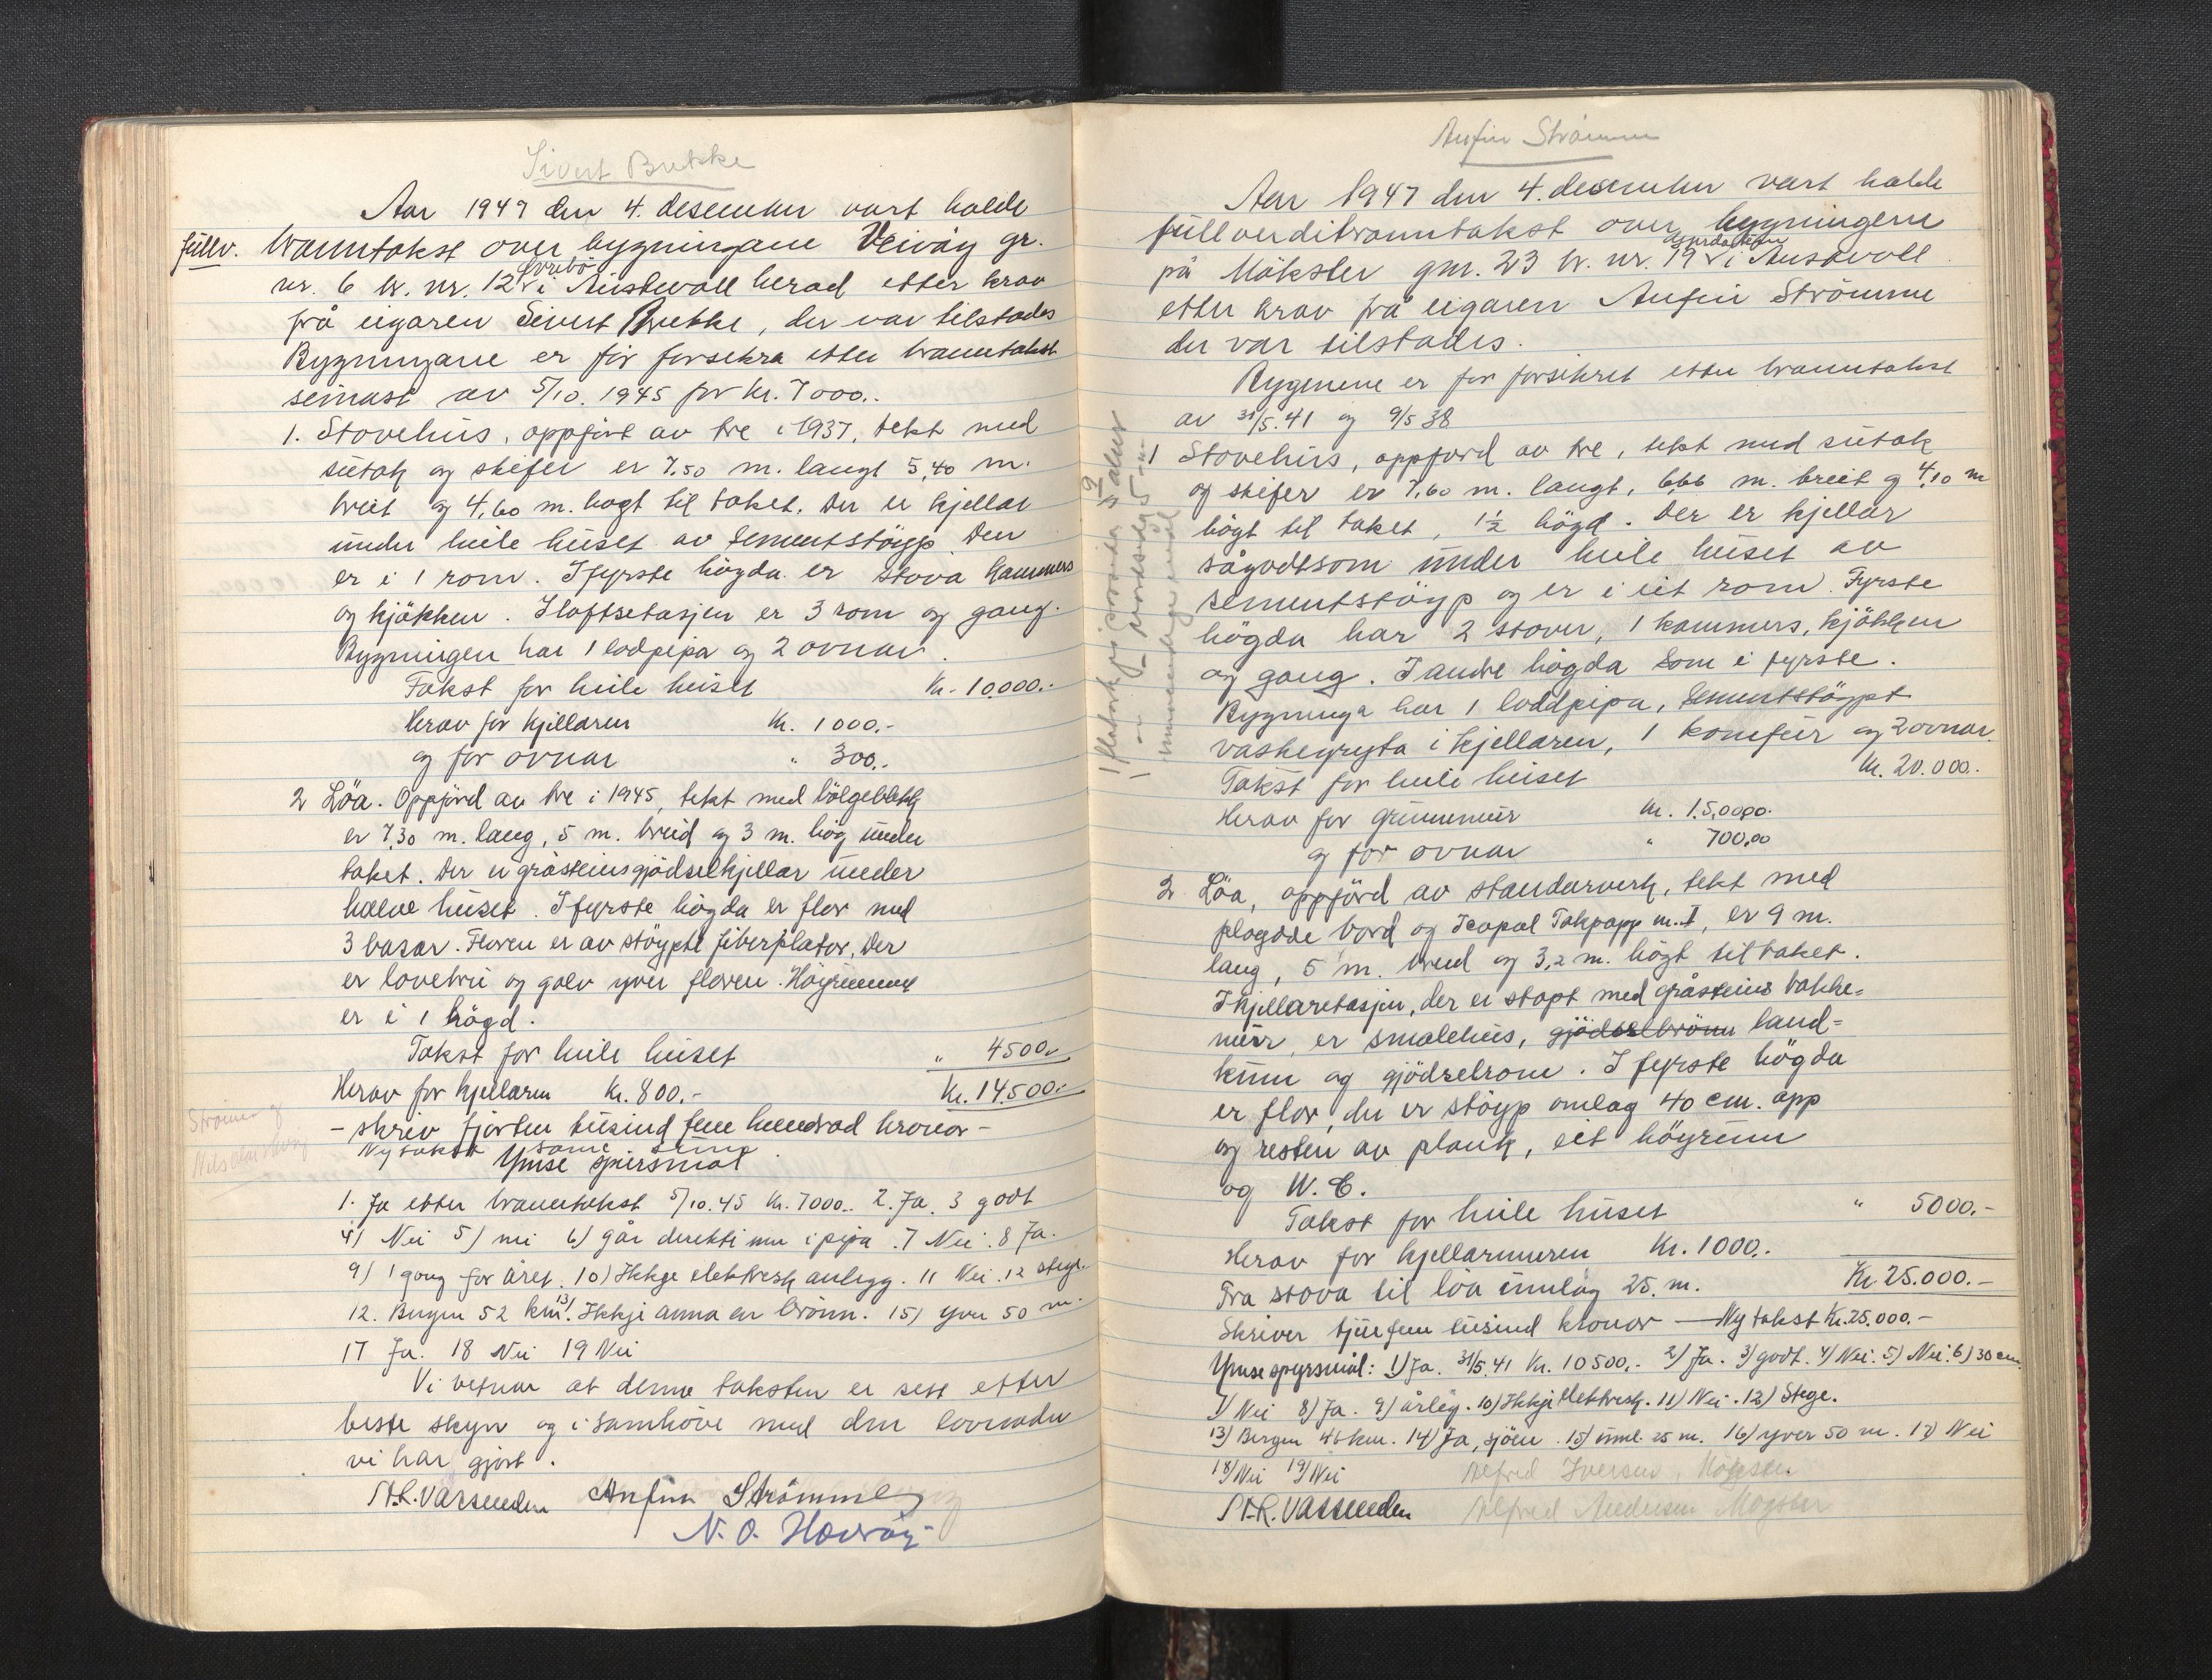 Sivert Brekke
Aar 1947 den 4. desember vart halde
fullv. branntakst over bygningane Veivåg gr.
nr. 6 br. nr. 12 i Austevoll herad etter krav
frå eigaren Sivert Brekke, der var tilstades
Bygningane er før forsikra etter branntakst
seinast av 5/10. 1945 for kr. 7000..
1. Stovehus, oppført av tre i 1937, tekt med
sutak og skifer er 7,50 m. langt 5,40 m.
breit og 4,60 m. høgt til taket. Der er kjellar
under heile huset av sementstöyp. Den
er i 1 rom. I fyrste högda er stova kammers
og kjökken. I loftsetasjen er 3 rom og gang.
Bygningen har 1 lodpipa og 2 ovnar.
Takst for heile huset Kr. 10.000.-
Herav for kjellaren Kr. 1000.-
og for ovnar " 300..
2 Löa. Oppförd av tre i 1945, tekt med bölgeblekk
er 7,30 m. lang, 5 m. breid og 3 m. hög under
taket. Der er gråsteinsgjödselkjellar under
halve huset. I fyrste högda er flor med
3 basar. Floren er av stöypte fiberplator. Der
er lovebru og golv yver floren. Höyrummet
er i 1 högd.
Takst for heile huset " 4500.-
Herav for kjellaren Kr. 800.- Kr. 14.500.-
- skriv fjorten tusind fem hundrad kronor -
Ny takst same sum.
Ymse spursmål
1. Ja etter branntakst 5/10.45 Kr. 7000.. 2. Ja. 3 godt
4) Nei 5) nei 6) går direkte inn i pipa. 7 Nei. 8 Ja.
9) 1 gong for året. 10) Ikkje elektrisk anlegg. 11 Nei. 12 stege.
12. Bergen 52 km. 13) Ikkje anna en brönn. 15) yver 50 m.
17 Ja. 18 Nei 19 Nei
Vi vitnar at denne taksten er sett etter
beste skyn og i samhöve med den lovnaden
vi har gjort.
St.R. Vassenden Anfinn Strömme
N. O. Hevrøy
Anfin Strømme
Aar 1947 den 4. desember vart halde
fullverdibranntakst over bygningene
på Mökster gnr. 23 br. nr. 19 i Austevoll
etter krav frå eigaren Anfin Strömme
der var tilstades.
Bygnene er før forsikret etter branntakst
av 31/5.41 og 9/5 38
1 Stovehus, oppførd av tre, tekt med sutak
og skifer er 7,60 m. langt, 6,66 m. breit og 4,10 m
högt til taket, 1½ högd. Der er kjellar
sågodtsom under heile huset av
sementstöyp og er i eit rom. Fyrste
högda har 2 stover, 1 kammers, kjökken
og gang. I andre högda som i fyrste.
Bygninga har 1 loddpipa, sementstöypt
vaskegryta i kjellaren, 1 komfur og 2 ovnar.
Takst for heile huset Kr. 20.000.-
Herav for grunnmur Kr. 1.5,0000.
og for ovnar " 700,00
2 Löa, oppförd av standarverk, tekt med
plogdde bord og Icopal Takpapp nr. I, er 9 m.
lang, 5 m. breid og 3,2 m. högt til taket.
I kjellaretasjen, der er stöpt med gråsteins bakke=
mur, er smalehus, gjödselbrönn land=
kum og gjödselrom. I fyrste högda
er flor, der er stöyp omlag 40 cm. opp
og resten av plank, eit höyrum
og W.C.
Takst for heile huset " 5000.-
Herav for kjellarmuren Kr. 1000..
Fra stova til löa umlag 25. m. Kr 25.000.-
Skriver tjuefem tusind kronor — Ny takst Kr. 25.000.-
Ymse spyrsmål: 1) Ja. 31/5.41 Kr. 10500.- 2) Ja. 3) godt. 4) Nei. 5) Nei. 6) 30 cm.
7) Nei 8) Ja. 9) årleg. 10) Ikkje elektrisk. 11) Nei. 12) Stege.
13) Bergen 46 km. 14) Ja, sjöen. 15) uml. 25 m. 16) yver 50 m. 17) Nei
18) Nei 19) Nei Alfred Iversen, Møkster
St.R. Vassenden Alfred Andersen Møgster